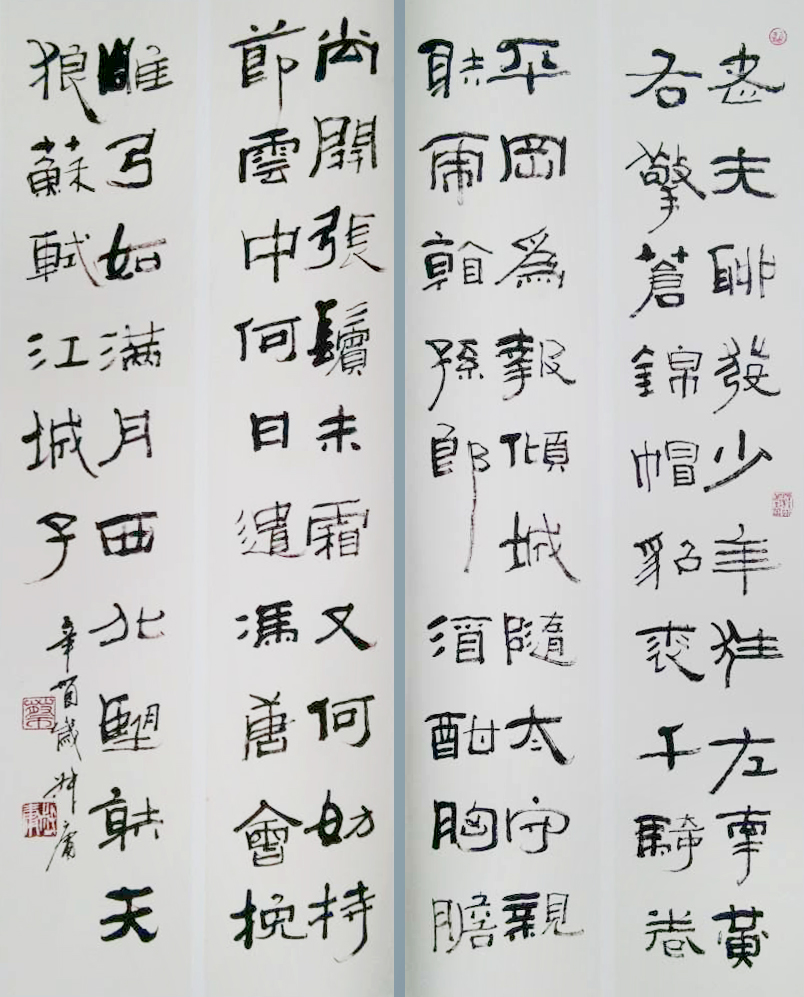 老夫聊發少年狂左牽黃
右擎蒼錦帽貂裘千騎卷
平岡爲報傾城隨太守親
射虎看孫郎酒酣胸膽
尚開張鬢未霜又何妨持
節雲中何日遣馮唐會挽
雕弓如满月西北望射天
狼蘇軾江城子
辛酉歲